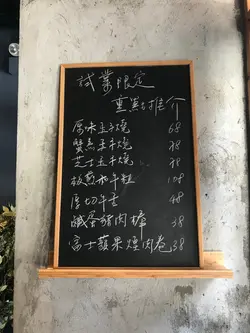 試業限定
重點推介
原味玉子燒 68
蟹羔玉子燒 78
芝士玉子燒 78
板煎和牛粒 108
厚切牛舌 48
鹹蛋豬肉棒 38
富士蘋果煙肉卷 38